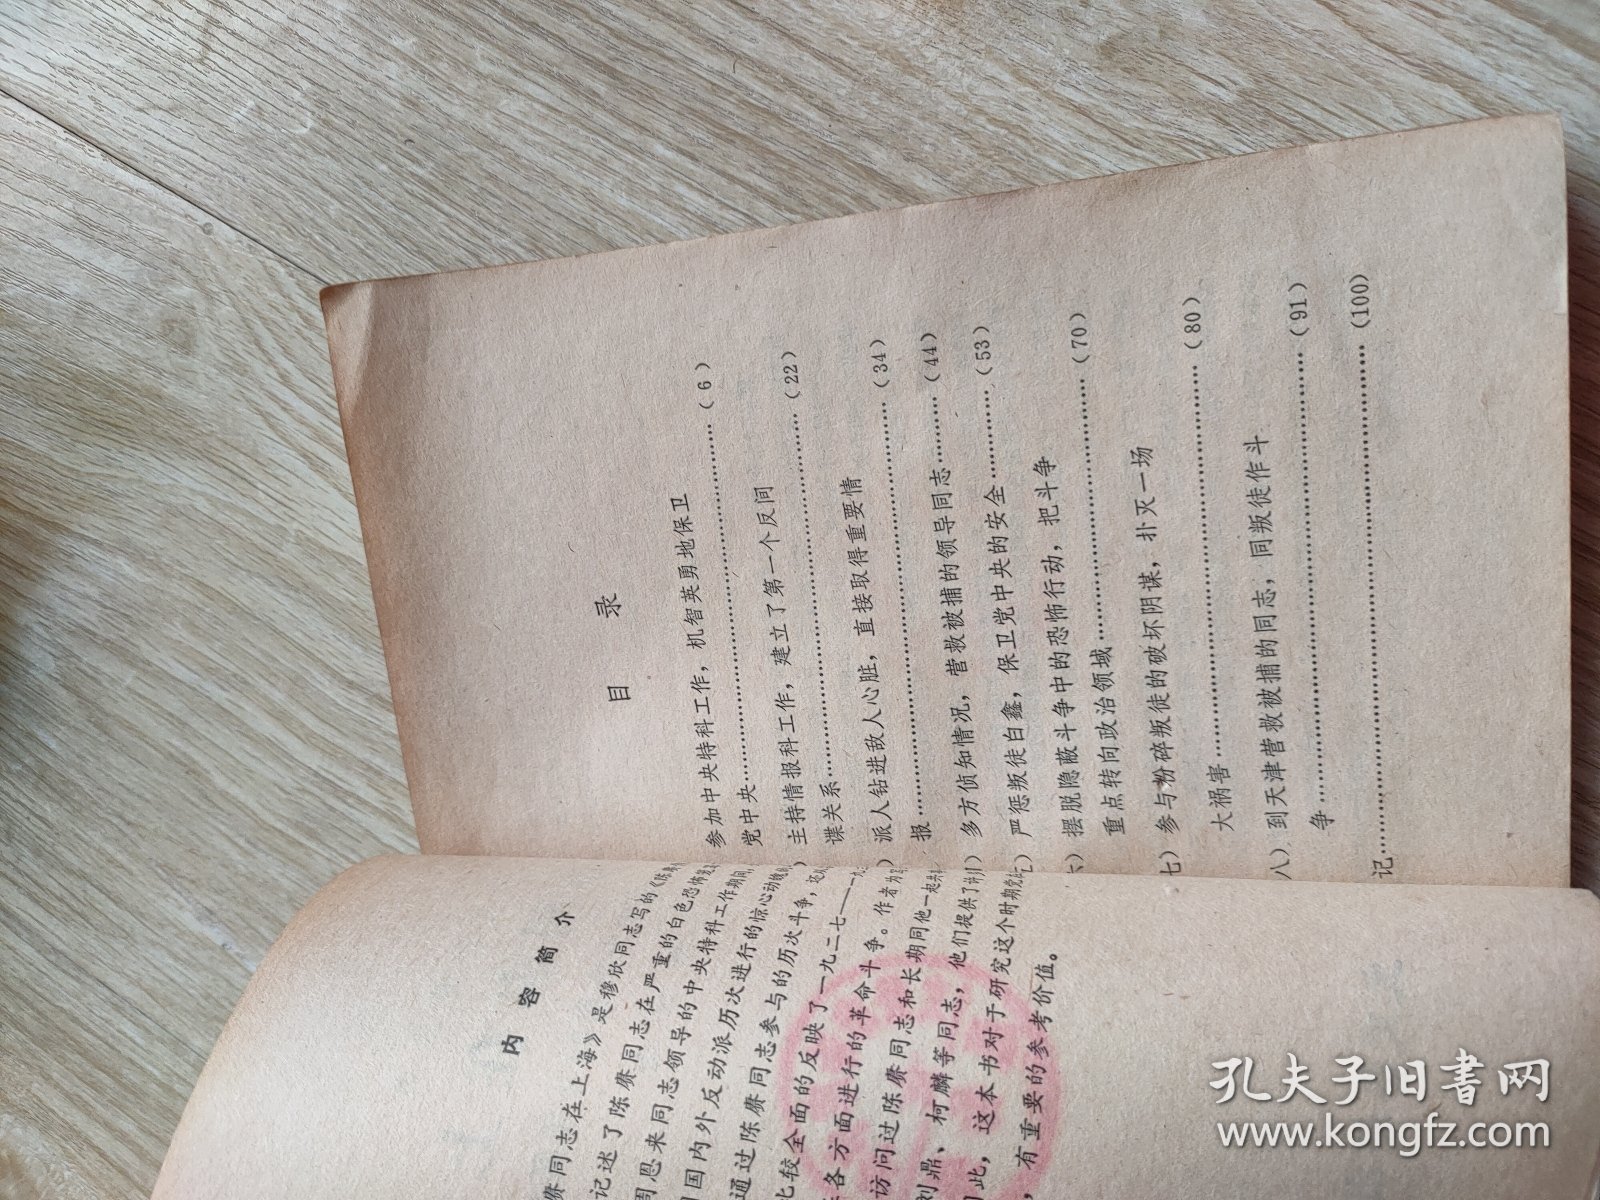 内容简介
赓同志在上海》是穆欣同志写的《陈赓
记述了陈赓同志在严重的白色恐怖
周恩来同志领导的中央特科工作期间
国内外反动派历次进行的惊心动魄
通过陈赓同志参与的历次斗争,还
比较全面的反映了一九二七——一九
各方面进行的革命斗争。作者为
访问过陈赓同志和长期同他一起
刘鼎、柯麟等同志,他们提供了
因此,这本书对于研究这个时期党
,有重要的参考价值。
目录
参加中央特科工作,机智英勇地保卫
党中央……(6)
主持情报科工作,建立了第一个反间
谍关系……(22)
派人钻进敌人心脏,直接取得重要情
报……(34)
多方侦知情况,营救被捕的领导同志……(44)
严惩叛徒白鑫,保卫党中央的安全……(53)
摆脱隐蔽斗争中的恐怖行动,把斗争
重点转向政治领域……(70)
七)参与粉碎叛徒的破坏阴谋,扑灭一场
大祸害……(80)
八)到天津营救被捕的同志,同叛徒作斗
争……(91)
记……(100)
孔夫子旧书网
www.kongfz.com